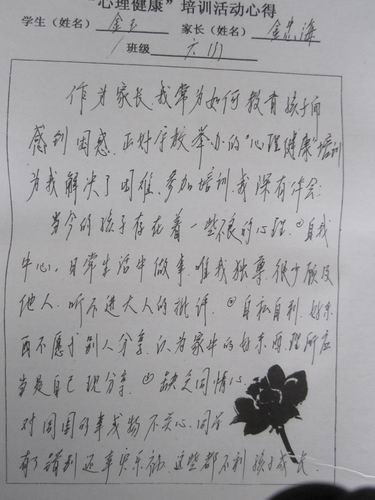 "心理健康"培训活动心得
学生(姓名) 金玉 家长(姓名) 金忠海
班级 六(1)
作为家长,我常为如何教育孩子而
感到困惑.正好学校举办的"心理健康"培训
为我解决了困难.参加培训.我深有体会:
当今的孩子存在着一些不良的心理.①自我
中心,日常生活中做事.唯我独尊.很少顾及
他人.听不进大人的批评.②自私自利.好东
西不愿与别人分享.认为家中的好东西理所应
当是自己 分享.③缺乏同情心.
对周围的事或物不关心.同学
有了错别还幸灾乐祸.这些都不利孩子成长.